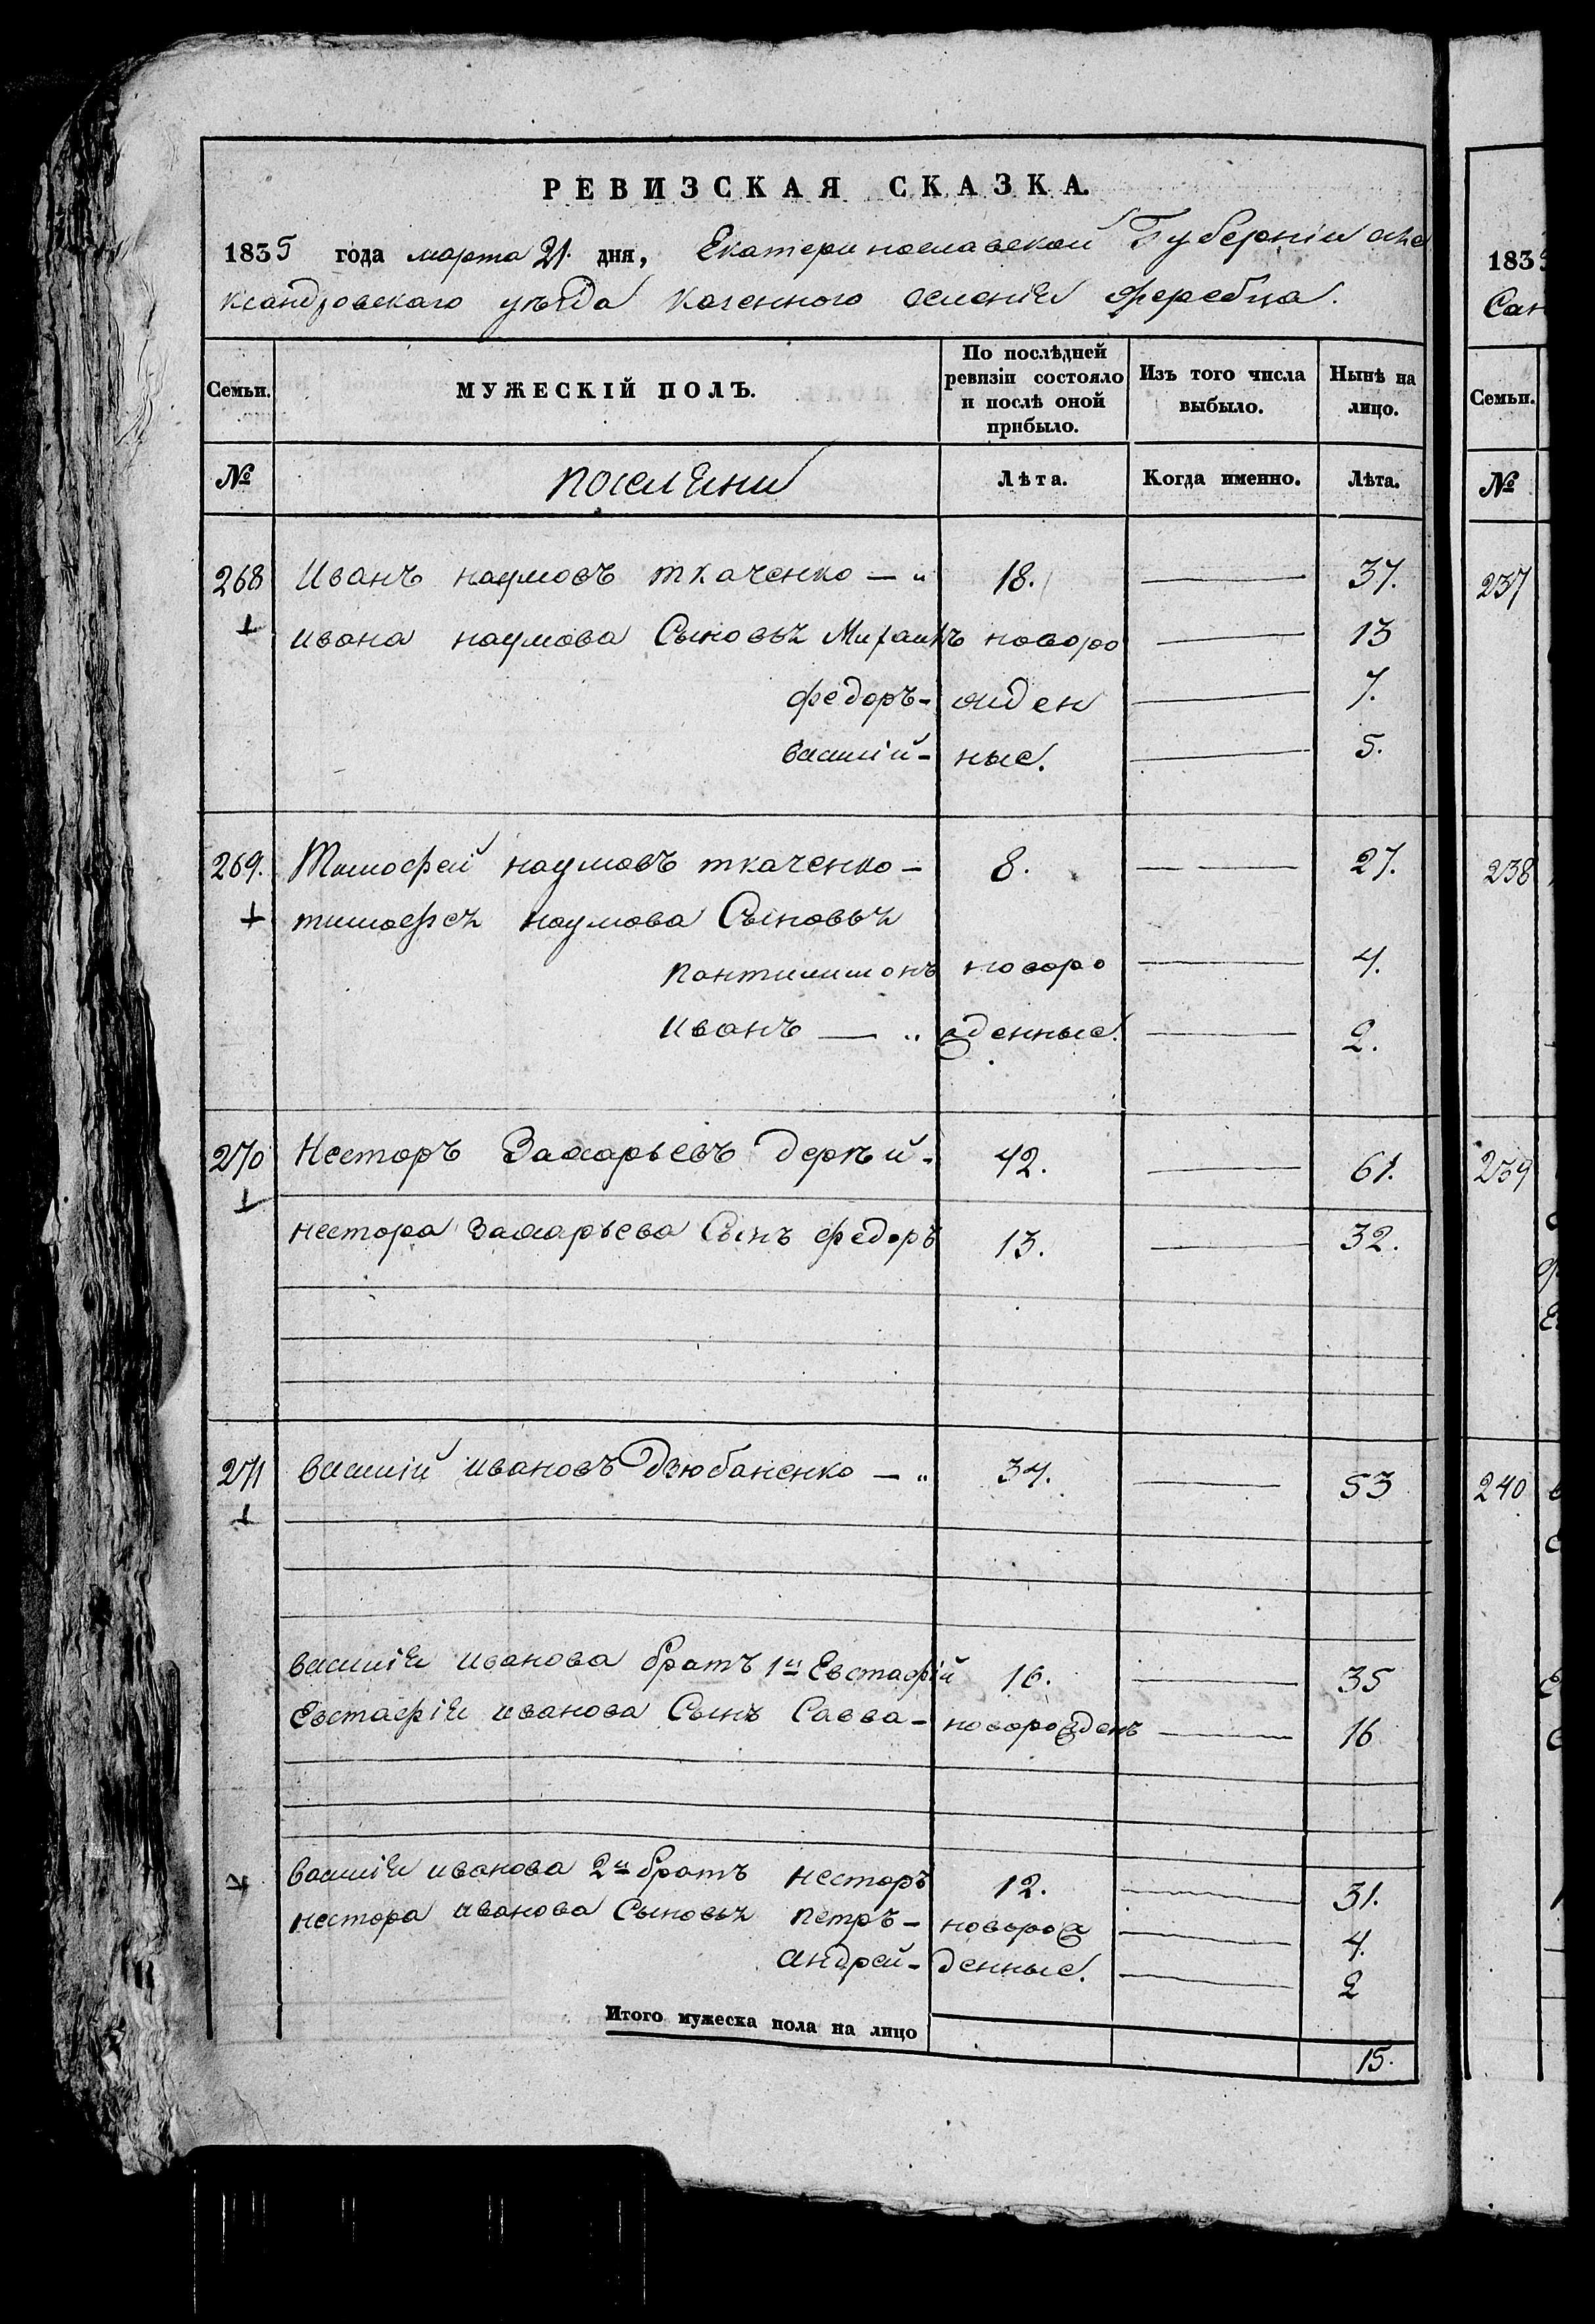 РЕВИЗСКАЯ СКАЗКА.
1835 года марта 21. дня, Екатеринославской Губерніи Але
ксандровскаго уѣзда казенного селенія Жеребца.
Семьи. МУЖЕСКІЙ ПОЛЪ. По послѣдней ревизіи состояло и послѣ оной прибыло. Изъ того числа выбыло. Нынѣ на лицо.
№ поселяни Лѣта. Когда именно. Лѣта.
268 Иванъ наумовъ ткаченко — „ 18. — 37.
ивана наумова Сыновья Михаилъ новоро — 13
федоръ - жден — 7.
василій - ные. — 5.
269. Тимофей наумовъ ткаченко — 8. — — 27.
тимофея наумова Сыновья
пантилимонъ новоро — 4.
иванъ — „ жденные. — 2.
270 Несторъ Захарьевъ деркѣй - 42. — 61.
нестора Захарьева Сынъ федоръ 13. — 32.
271 василій ивановъ Дзюбаненко — „ 34. — 53
василія иванова братъ 1й Евстафій 16. — 35
Евстафія иванова Сынъ Савва - новорожденъ — 16
василія иванова 2й братъ несторъ 12. — 31.
нестора иванова Сыновья петръ - новорож — 4.
андрей - денные. — 2
Итого мужеска пола на лицо 15.
1835
Сан
Семьи.
№
237
238
239
240